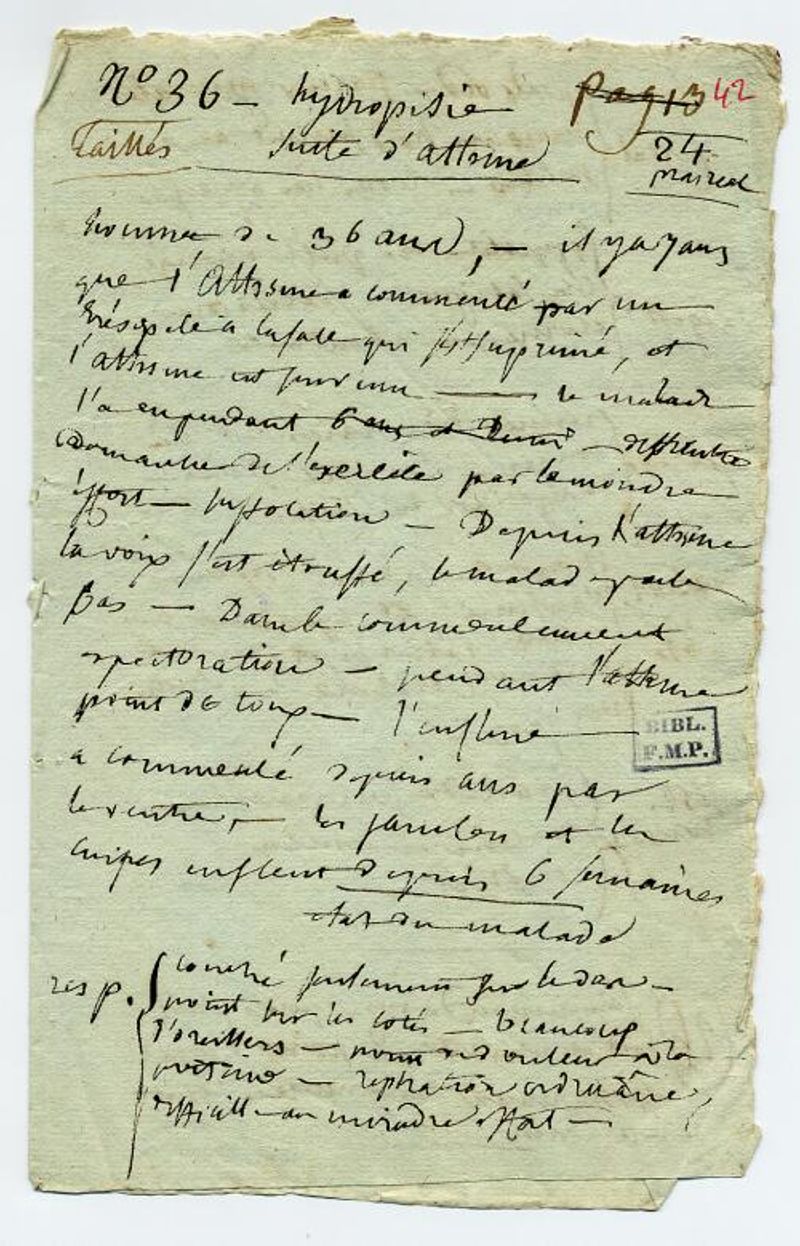 N° 36 — hydropisie pag 13 42
Taillés suite d'attsme 24
homme de 36 ans, — il y a 7 ans
que l'Attsme a commencé par un
Erésipele a la face qui s'est suprimé, et
l'attsme est survenu — le malade
l'a eu pendant 6 ans et demi — difficulté
de marcher de l'exercice par le moindre
effort — suffocation — Depuis l'attsme
la voix s'est étouffé, le malade parle
bas — Dans le commencement
expectoration — pendant l'attsme
point de toux — l'enflure
a commencé depuis ans par
le ventre, — les jambes et les
cuises enflent depuis 6 semaines
etat du malade
resp. couché seulement sur le dos —
point sur les cotés — beaucoup
d'oreillers — point de douleur à la
poitrine — respiration ordinaire,
difficille au moindre effort —
BIBL.
F.M.P.